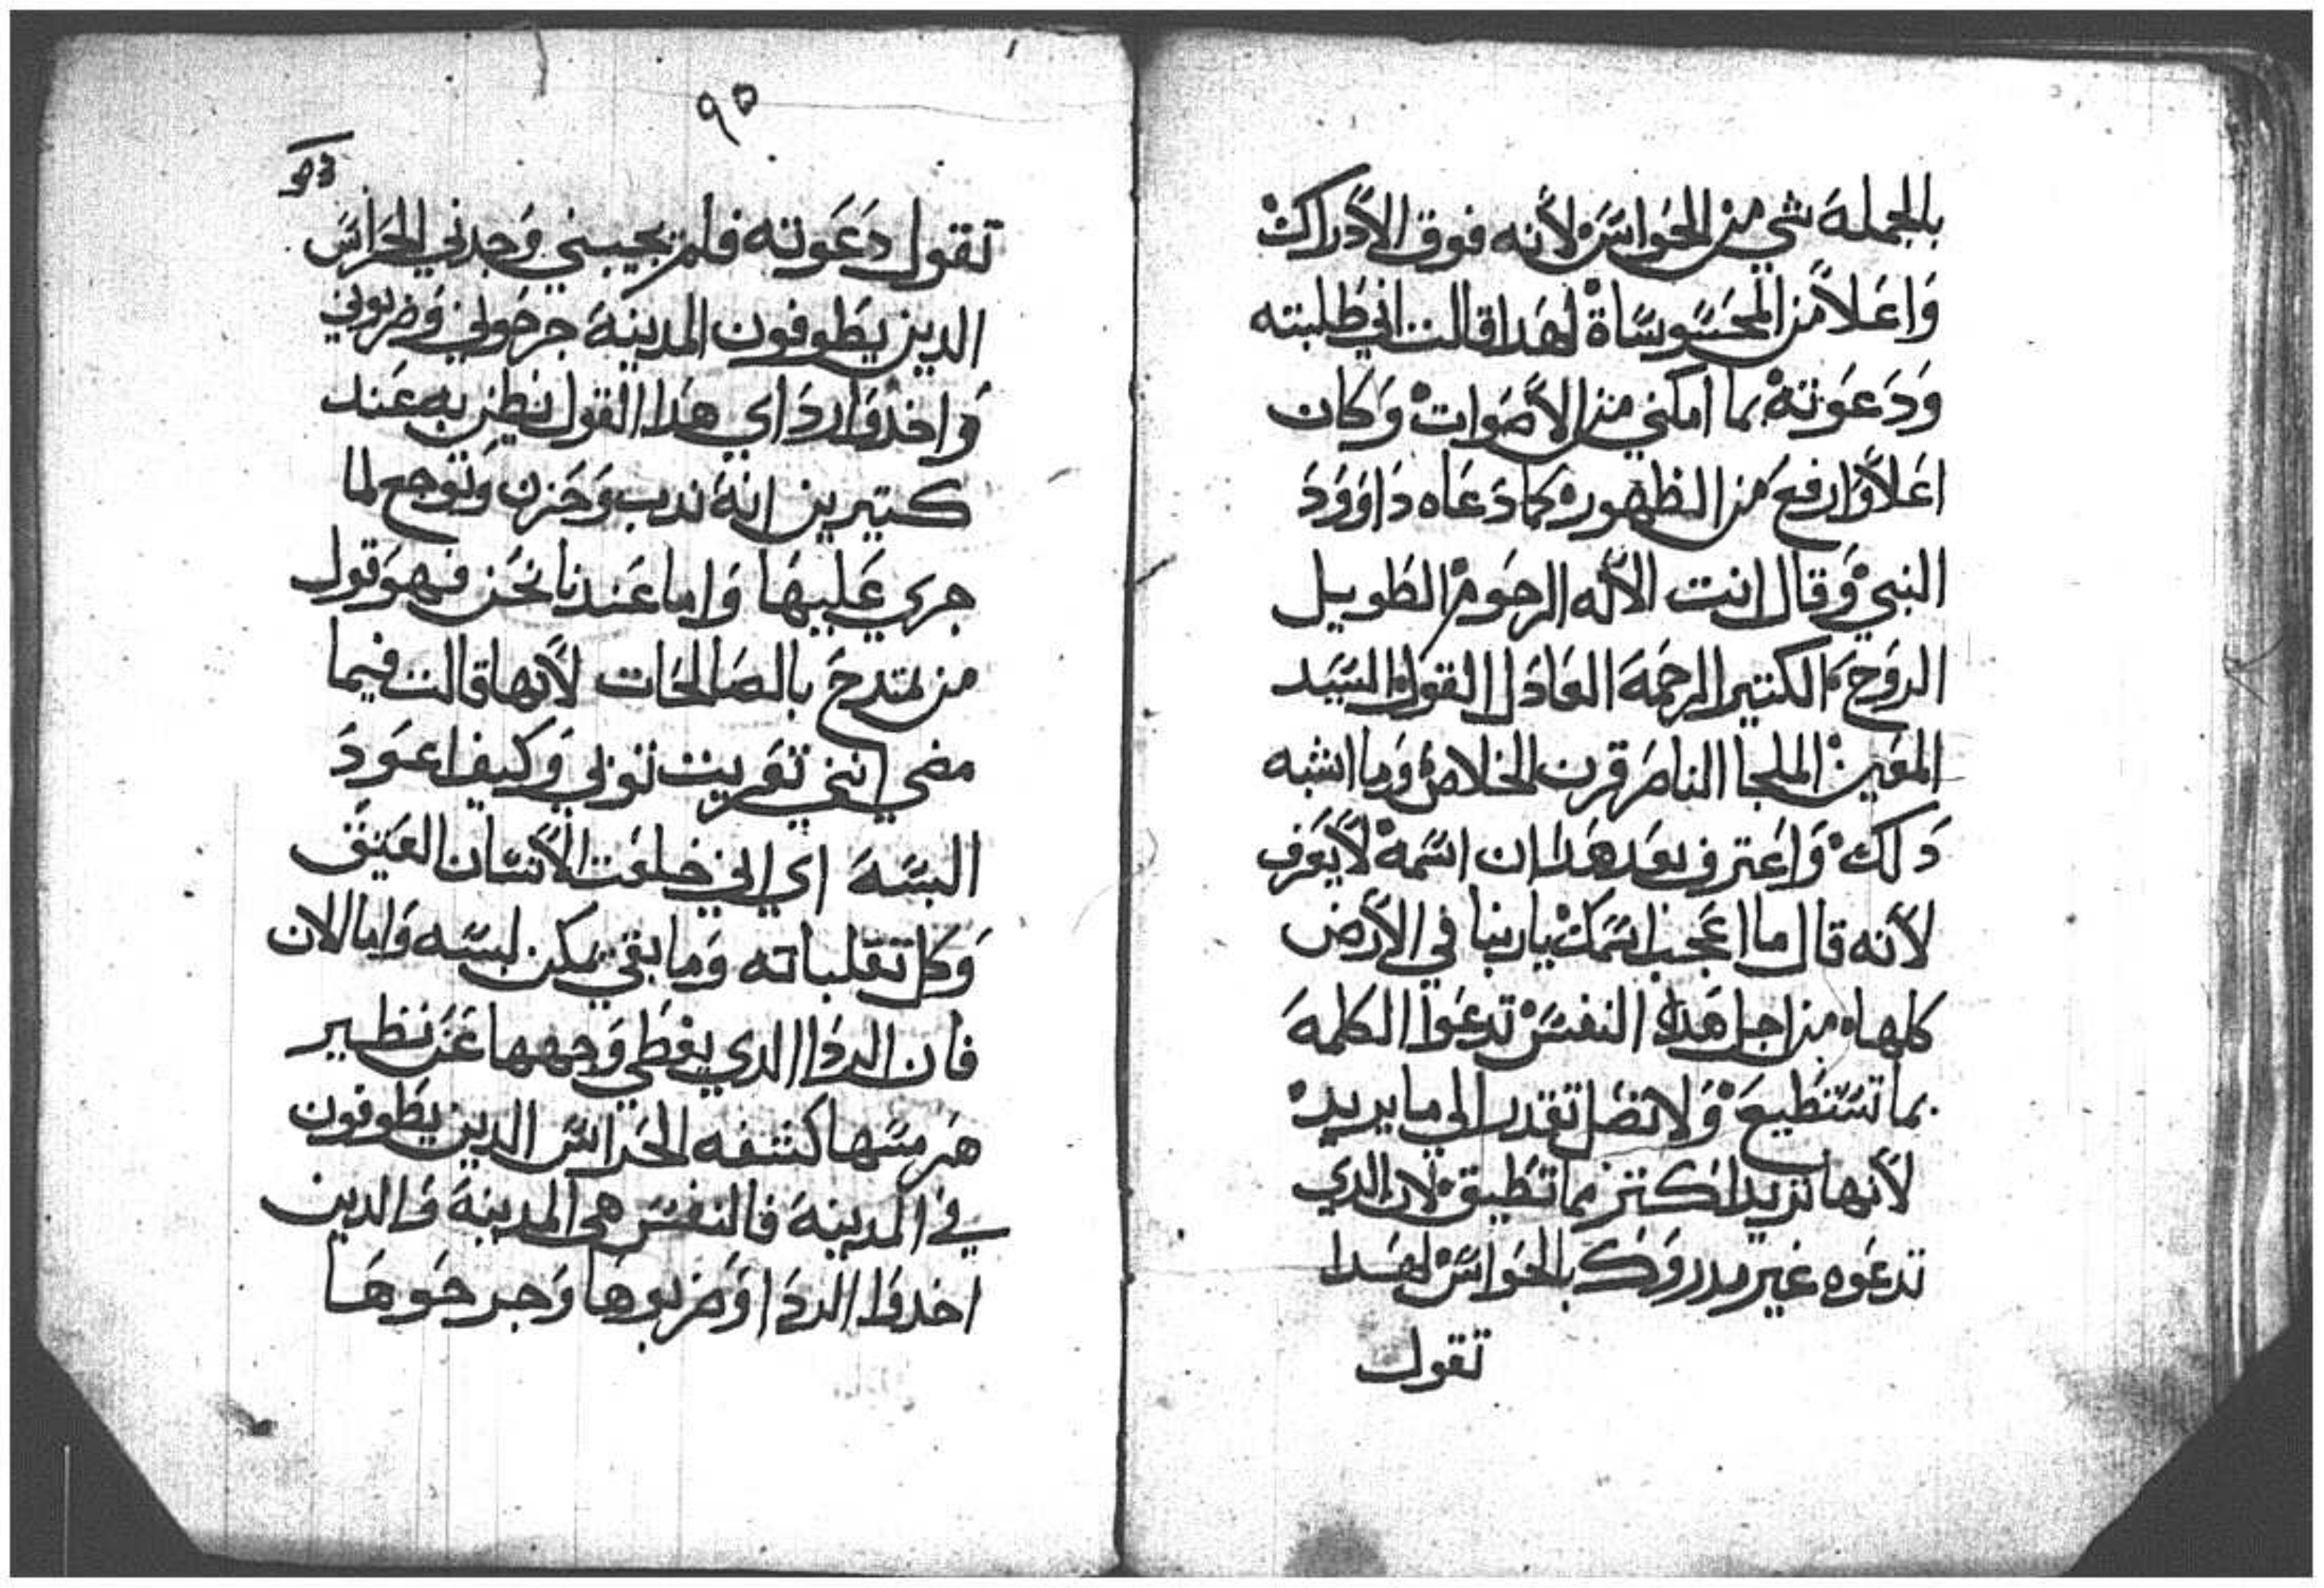 بالجملة شي من الحواس لأنه فوق الأدراك
واعلا من المحسوساة لهدا قالت اني طلبته
ودعوته بما امكني من الأصوات وكان
اعلا وارفع من الظهور كما دعاه داوود
النبي وقال انت الأله الرحوم الطويل
الروح الكتير الرحمة العادل القول السيد
المعين الملجا الناصر قرن الخلاص وما اشبه
دلك واعترف بعد هدا ان اسمه لا يعرف
لأنه قال ما اعجب اسمك يا ربنا في الأرض
كلها من اجل هدا النفس تدعوا الكلمة
بما تستطيع ولا تصل تقدر الي ما يريد
لأنها تريد اكتر مما تطيق لان الدي
تدعوه غير مدروك بالحواس لهدا
تقول
٩٥
تقول دعوته فلم يجيبني وجدني الحراس
الدين يطوفون المدينة جرحوني وضربوني
واخدوا رداي هدا القول نطن به عند
كتيرين انه ندب وحزن وتوجع لما
جري عليها واما عندنا نحن فهو قول
من يمتدح بالصالحات لأنها قالت فيما
مضي انني تعريت توبي وكيف اعود
البسه اي اني خلعت الأنسان العتيق
وكل تقلباته وما بقي يمكن لبسه واما الان
فان الردا الدي يغطي وجهها عن نظير
كشفه الحراس الدين يطوفون
في المدينة فالنفس هي المدينة والدين
اخدوا الردا وضربوها وجرحوها